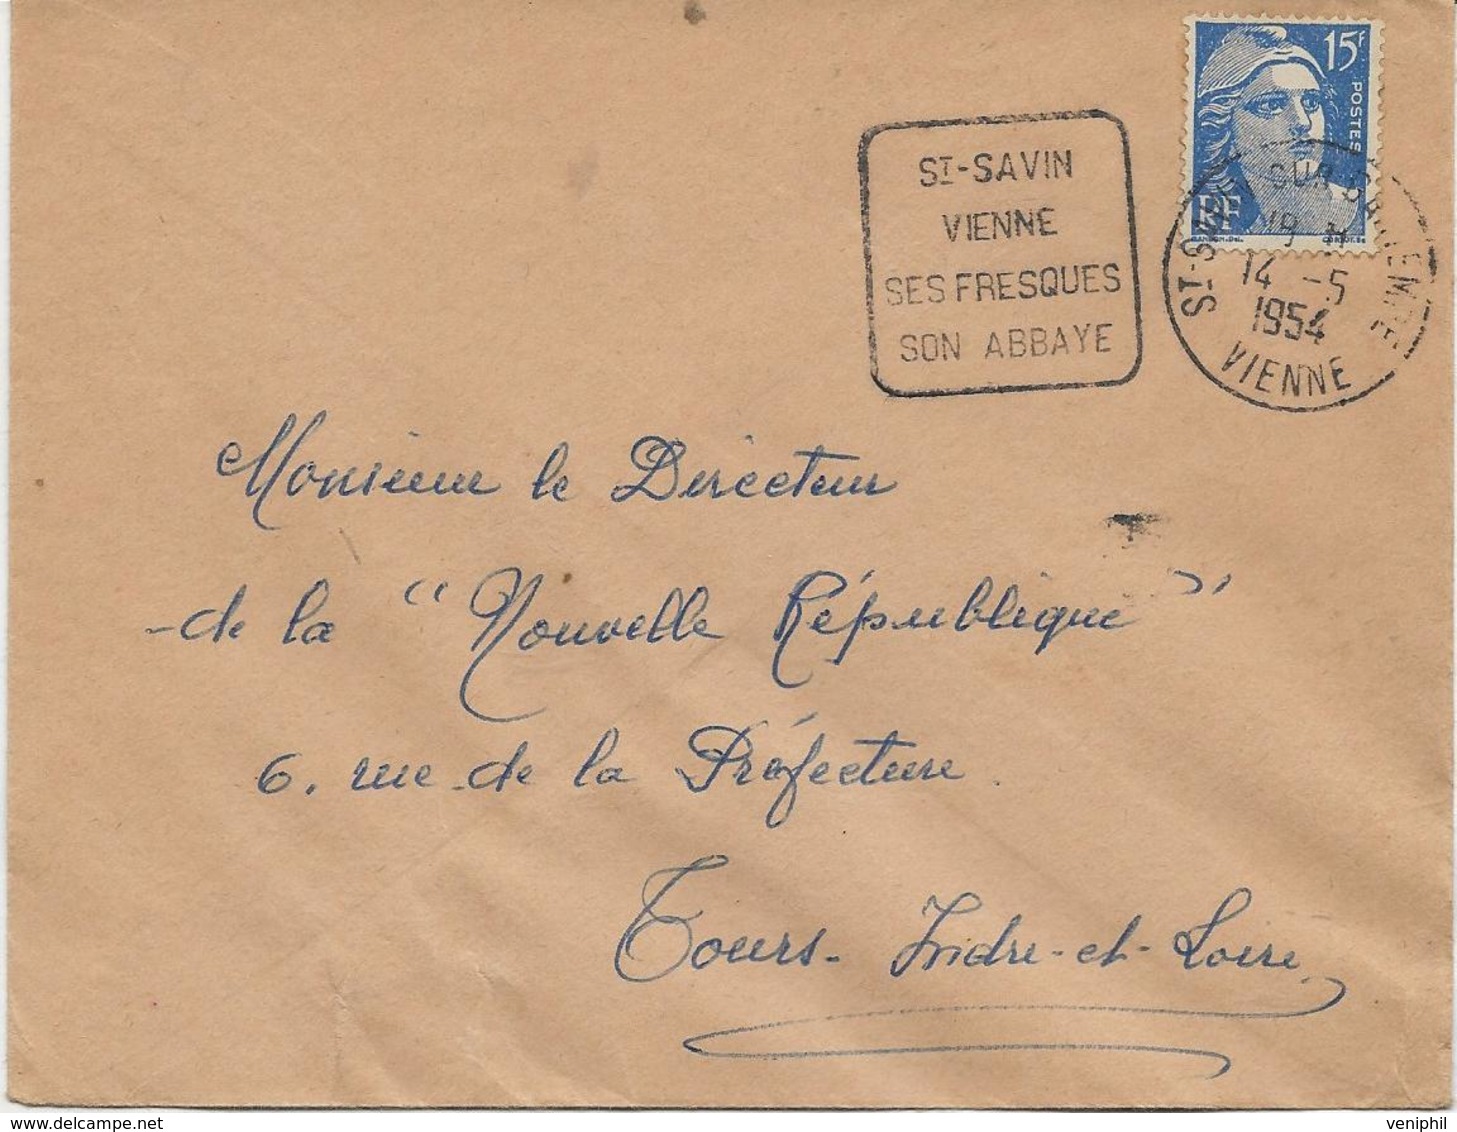 15F
POSTES
RF
ST-SAVIN
VIENNE
SES FRESQUES
SON ABBAYE
ST-SAVIN SUR GARTEMPE
19 H
14 -5
1954
VIENNE
Monsieur le Directeur
de la "Nouvelle République"
6, rue de la Préfecture
Tours - Indre-et-Loire
veniphil